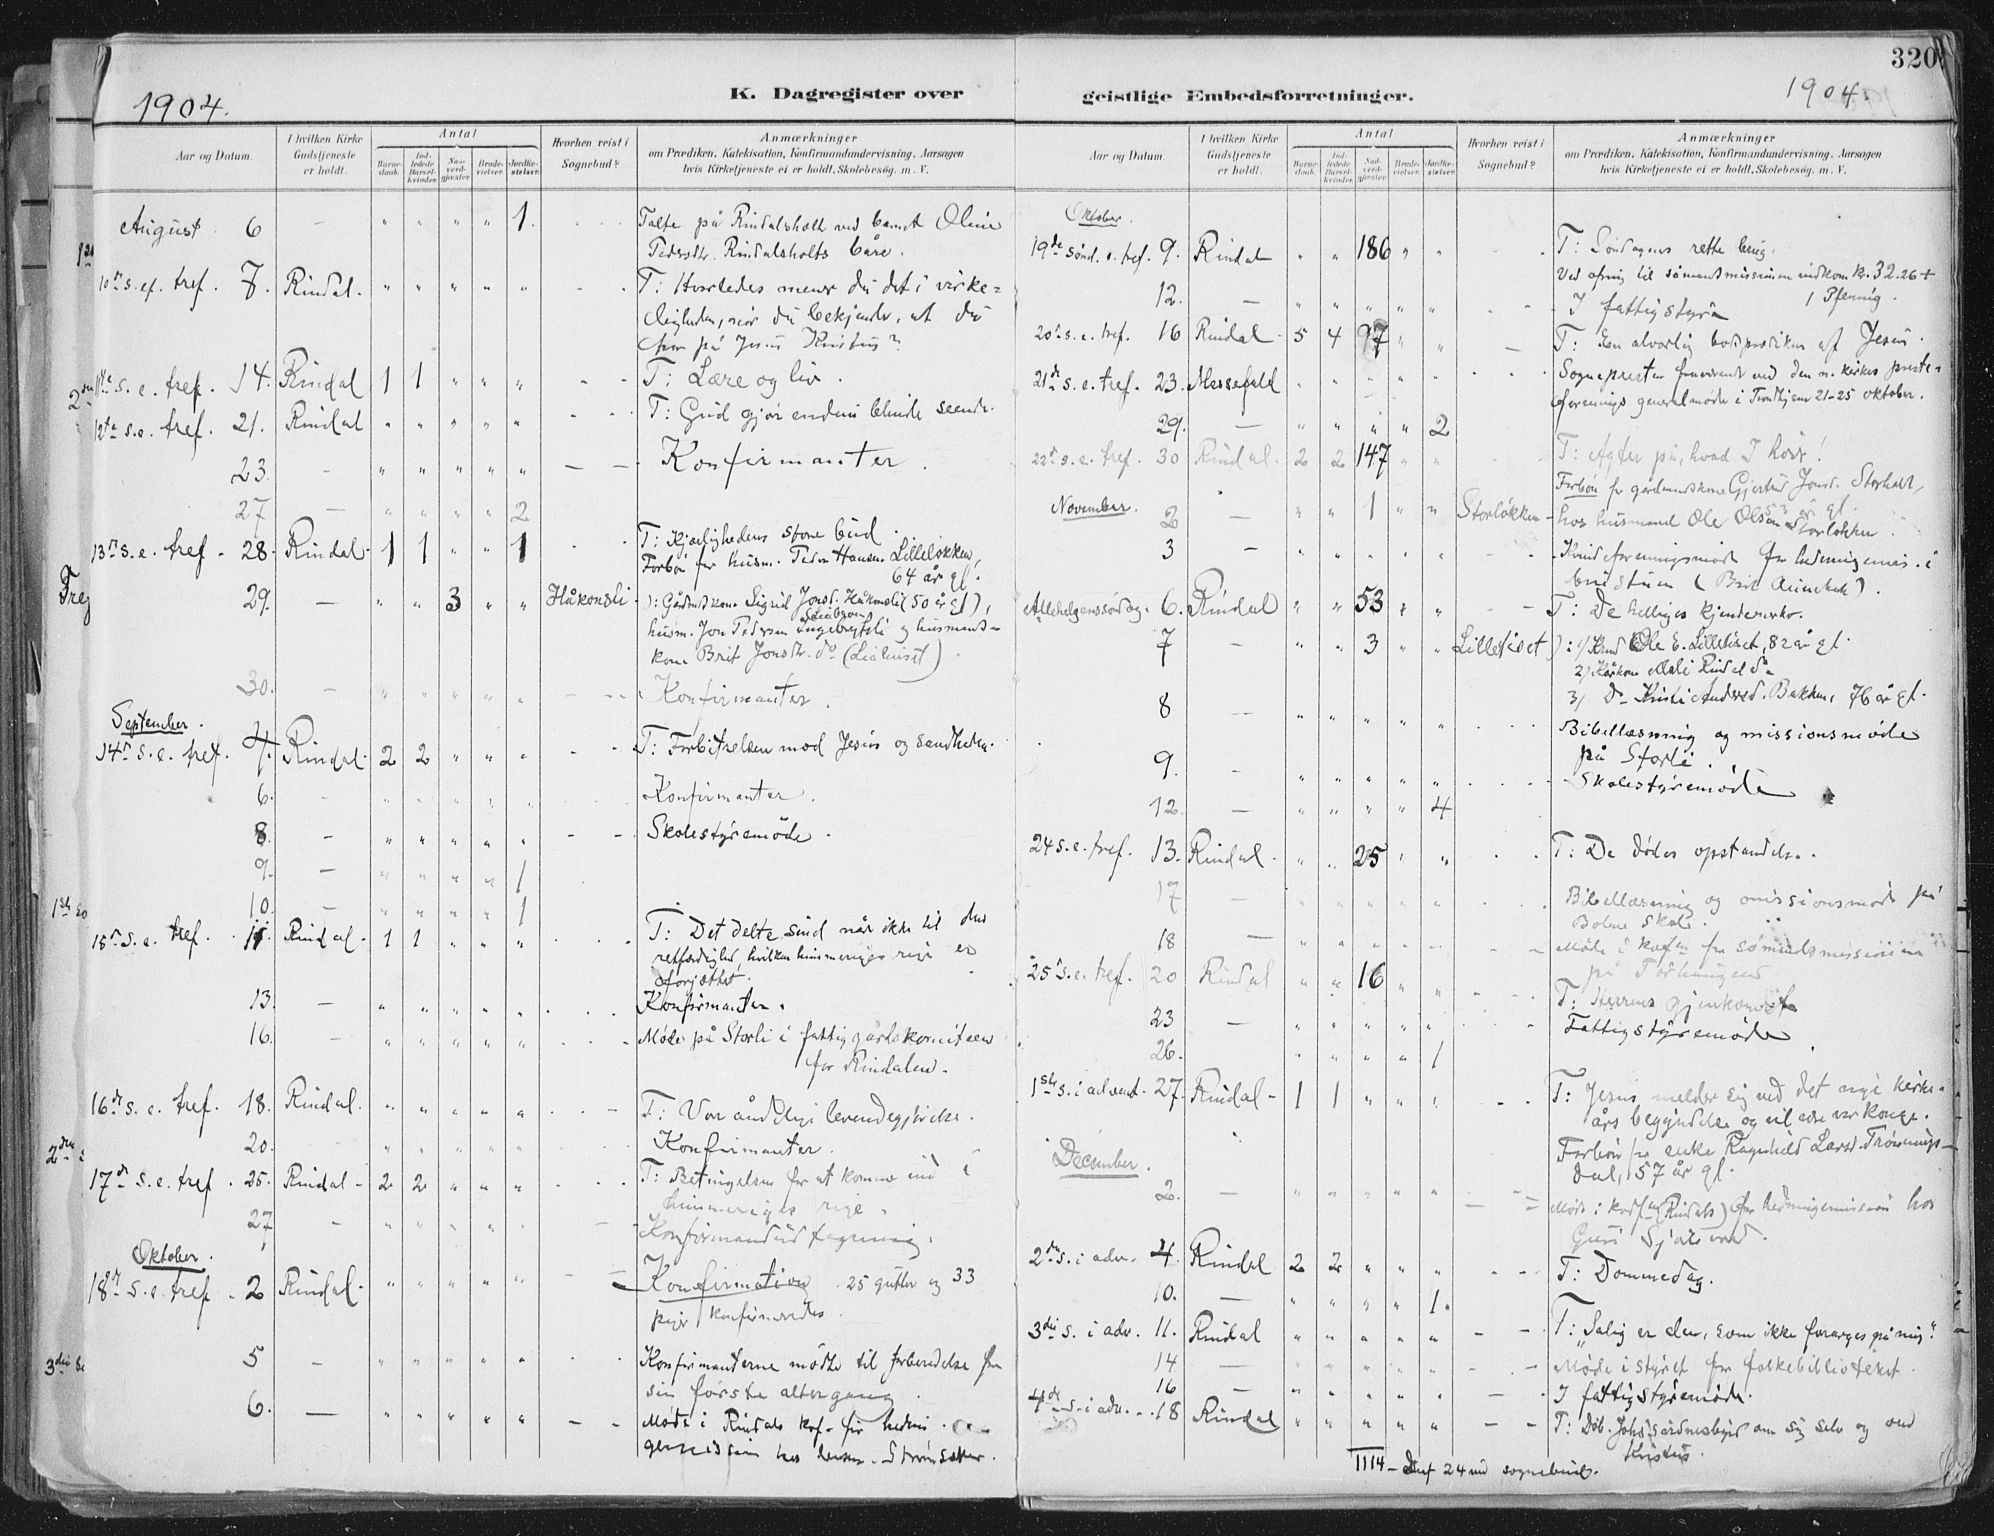 320
1904.
K. Dagregister over
geistlige Embedsforretninger.
1904.
Aar og Datum.
I hvilken Kirke Gudstjeneste er holdt.
Antal
Barnedaab.
Indledede Barselkvinder.
Nadverdgjester.
Brudevielser.
Jordfæstelser.
Hvorhen reist i Sognebud?
Anmærkninger
om Prædiken, Katekisation, Konfirmandundervisning, Aarsagen
hvis Kirketjeneste ei er holdt, Skolebesøg. m. V.
August 6 — " " " " 1. Talte på Rindalsholt ved barnet Oline
Pedersdr. Rindalsholts båre.
10de s. ef. tref. 7. Rindal. " " " " " T: Hvorledes mener du det i virke=
ligheden, når du bekjender, at du
tror på Jesus Kristus?
11te s. e. tref. 14. Rindal 1 1 " " " T: Lære og liv.
12te s. e. tref. 21. Rindal " " " " " T: Gud gjør endnu blinde seende.
23. — " " " " " Konfirmanter.
27 — " " " " 2
13de s. e. tref. 28. Rindal. 1 1 " " 1 T: Kjærlighedens store bud.
Forbøn for husm. Peder Hansen Lilleløkken,
64 år gl.
29. — " " 3 " " Håkonsli ): Gårdmdskone Sigrid Jonsd. Håkonsli (50 år gl),
husm. Jon Pedersen Ingebrigtsli og husmands-
kone Brit Jonsdr. do (Liahuset)
30. — " " " " " Konfirmanter.
September.
14de s. e. tref. 4. Rindal. 2 2 " " " T: Forbitrelsen mod Jesus og sandheden.
6. — " " " " " Konfirmanter.
8. — " " " " " Skolestyremöde.
9. — " " " " 1
10. — " " " " 1
15de s. e. tref. 11. Rindal. 1 1 " " " T: Det delte sind når ikke til den
retfærdighed, hvilken himmeriges rige er
forjættet.
13. — " " " " " Konfirmanter.
16. — " " " " " Møde på Storli i fattiggårdskomiteen
for Rindalen.
16de s. e. tref. 18. Rindal. " " " " " T: Vor åndelige levendegjørelse.
20. — " " " " " Konfirmanter.
17de s. e. tref. 25. Rindal 2 2 " " " T: Betingelsen for at komme ind i
himmeriges rige.
27 — " " " " " Konfirmandudtagning.
Oktober.
18de s. e. tref. 2 Rindal. " " " " " Konfirmation 25 gutter og 33
piger konfirmeredes.
5 — " " " " " Konfirmanterne mødte til forberedelse for
sin første altergang.
6. — " " " " " Møde i Rindals kvf. for hednin-
gemissionen hos Strømsæter.
Aar og Datum.
I hvilken Kirke Gudstjeneste er holdt.
Antal
Barnedaab.
Indledede Barselkvinder.
Nadverdgjester.
Brudevielser.
Jordfæstelser.
Hvorhen reist i Sognebud?
Anmærkninger
om Prædiken, Katekisation, Konfirmandundervisning, Aarsagen
hvis Kirketjeneste ei er holdt, Skolebesøg. m. V.
Oktober.
19de sönd. e. tref. 9. Rindal " " 186 " " T: Søndagens rette brug.
Ved ofring til sömandsmissionen indkom kr. 32.26 +
1 Pfennig.
12. — " " " " " I fattigstyre
20de s. e. tref. 16 Rindal 5 4 97 " " T: En alvorlig bodsprediken af Jesus.
21de s. e. tref. 23. Messefald " " " " " Sognepresten fraværende ved den n. kirkes preste-
forenings generalmøde i Trondhjem 21-25 oktober.
29. — " " " " 2
22de s. e. tref. 30 Rindal. 2 2 147 " " T: Agter på, hvad I hører!
Forbön for gårdmandskone Gjertrud Jonsd. Storholt,
53 år gl.
November.
2 — " " 1 " " Storløkken - hos husmand Ole Olsen Storløkken.
3 — " " " " " Kvindeforeningsmøde for hedningemis. i
(Brit).
Allehelgenssöndag. 6. Rindal " " 53 " " T: De helliges kjendemerker.
7 — " " 3 " " Lillesiset ): 1) Ole E. Lillesiset, 82 år gl.
2) Rindal do
3) Do Kristi Andersd. Bakken, 76 år gl.
8 — " " " " " Bibellæsning og missionsmøde
på Storli.
9. — " " " " " Skolestyremøde
12. — " " " " 4
24 s. e. tref. 13. Rindal. " " 25 " " T: De dødes opstandelse.
17 — " " " " " Bibellæsning og missionsmøde på
Bolme skole.
18 — " " " " " Møde i kvfen for sømandsmissionen
på
25de s. e. tref. 20 Rindal " " 16 " " T: Herrens gjenkomst
23 — " " " " " Fattigstyremøde
26. " " " " 1
1ste s. i advent. 27. Rindal - 1 1 " " " T: Jesus melder sig ved det nye kirke-
års begyndelse og vil være vor konge.
Forbøn for enke Ragnhild Larsd. Trønnings-
dal, 57 år gl.
December.
2. — " " " " " Møde i kvfen (Rindals) for hedningemissionen hos
Guri
2den s. i adv. 4. Rindal 2 2 " " " T: Dommedag.
10. — " " " " 1.
3die s. i adv. 11. Rindal " " " " " T: "Salig er den, som ikke forarges på mig."
14 — " " " " " Møde i styret for folkebiblioteket.
16 — " " " " " I fattigstyremøde.
4de s. i adv. 18 Rindal " " " " " T: Döb. Joh's vidnesbyrd om sig selv og om
Kristus.
1114 - Deraf 24 ved sognebud.